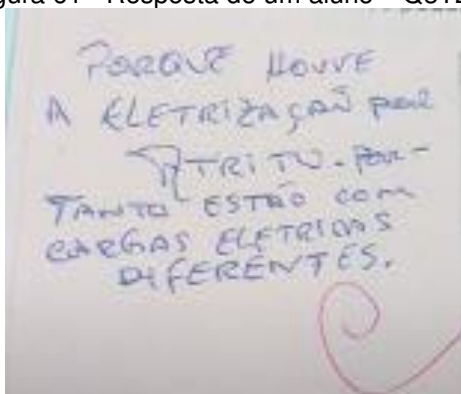 Resposta de um aluno
PORQUE HOUVE
A ELETRIZAÇÃO POR
ATRITO. POR-
TANTO ESTÃO COM
CARGAS ELETRICAS
DIFERENTES.